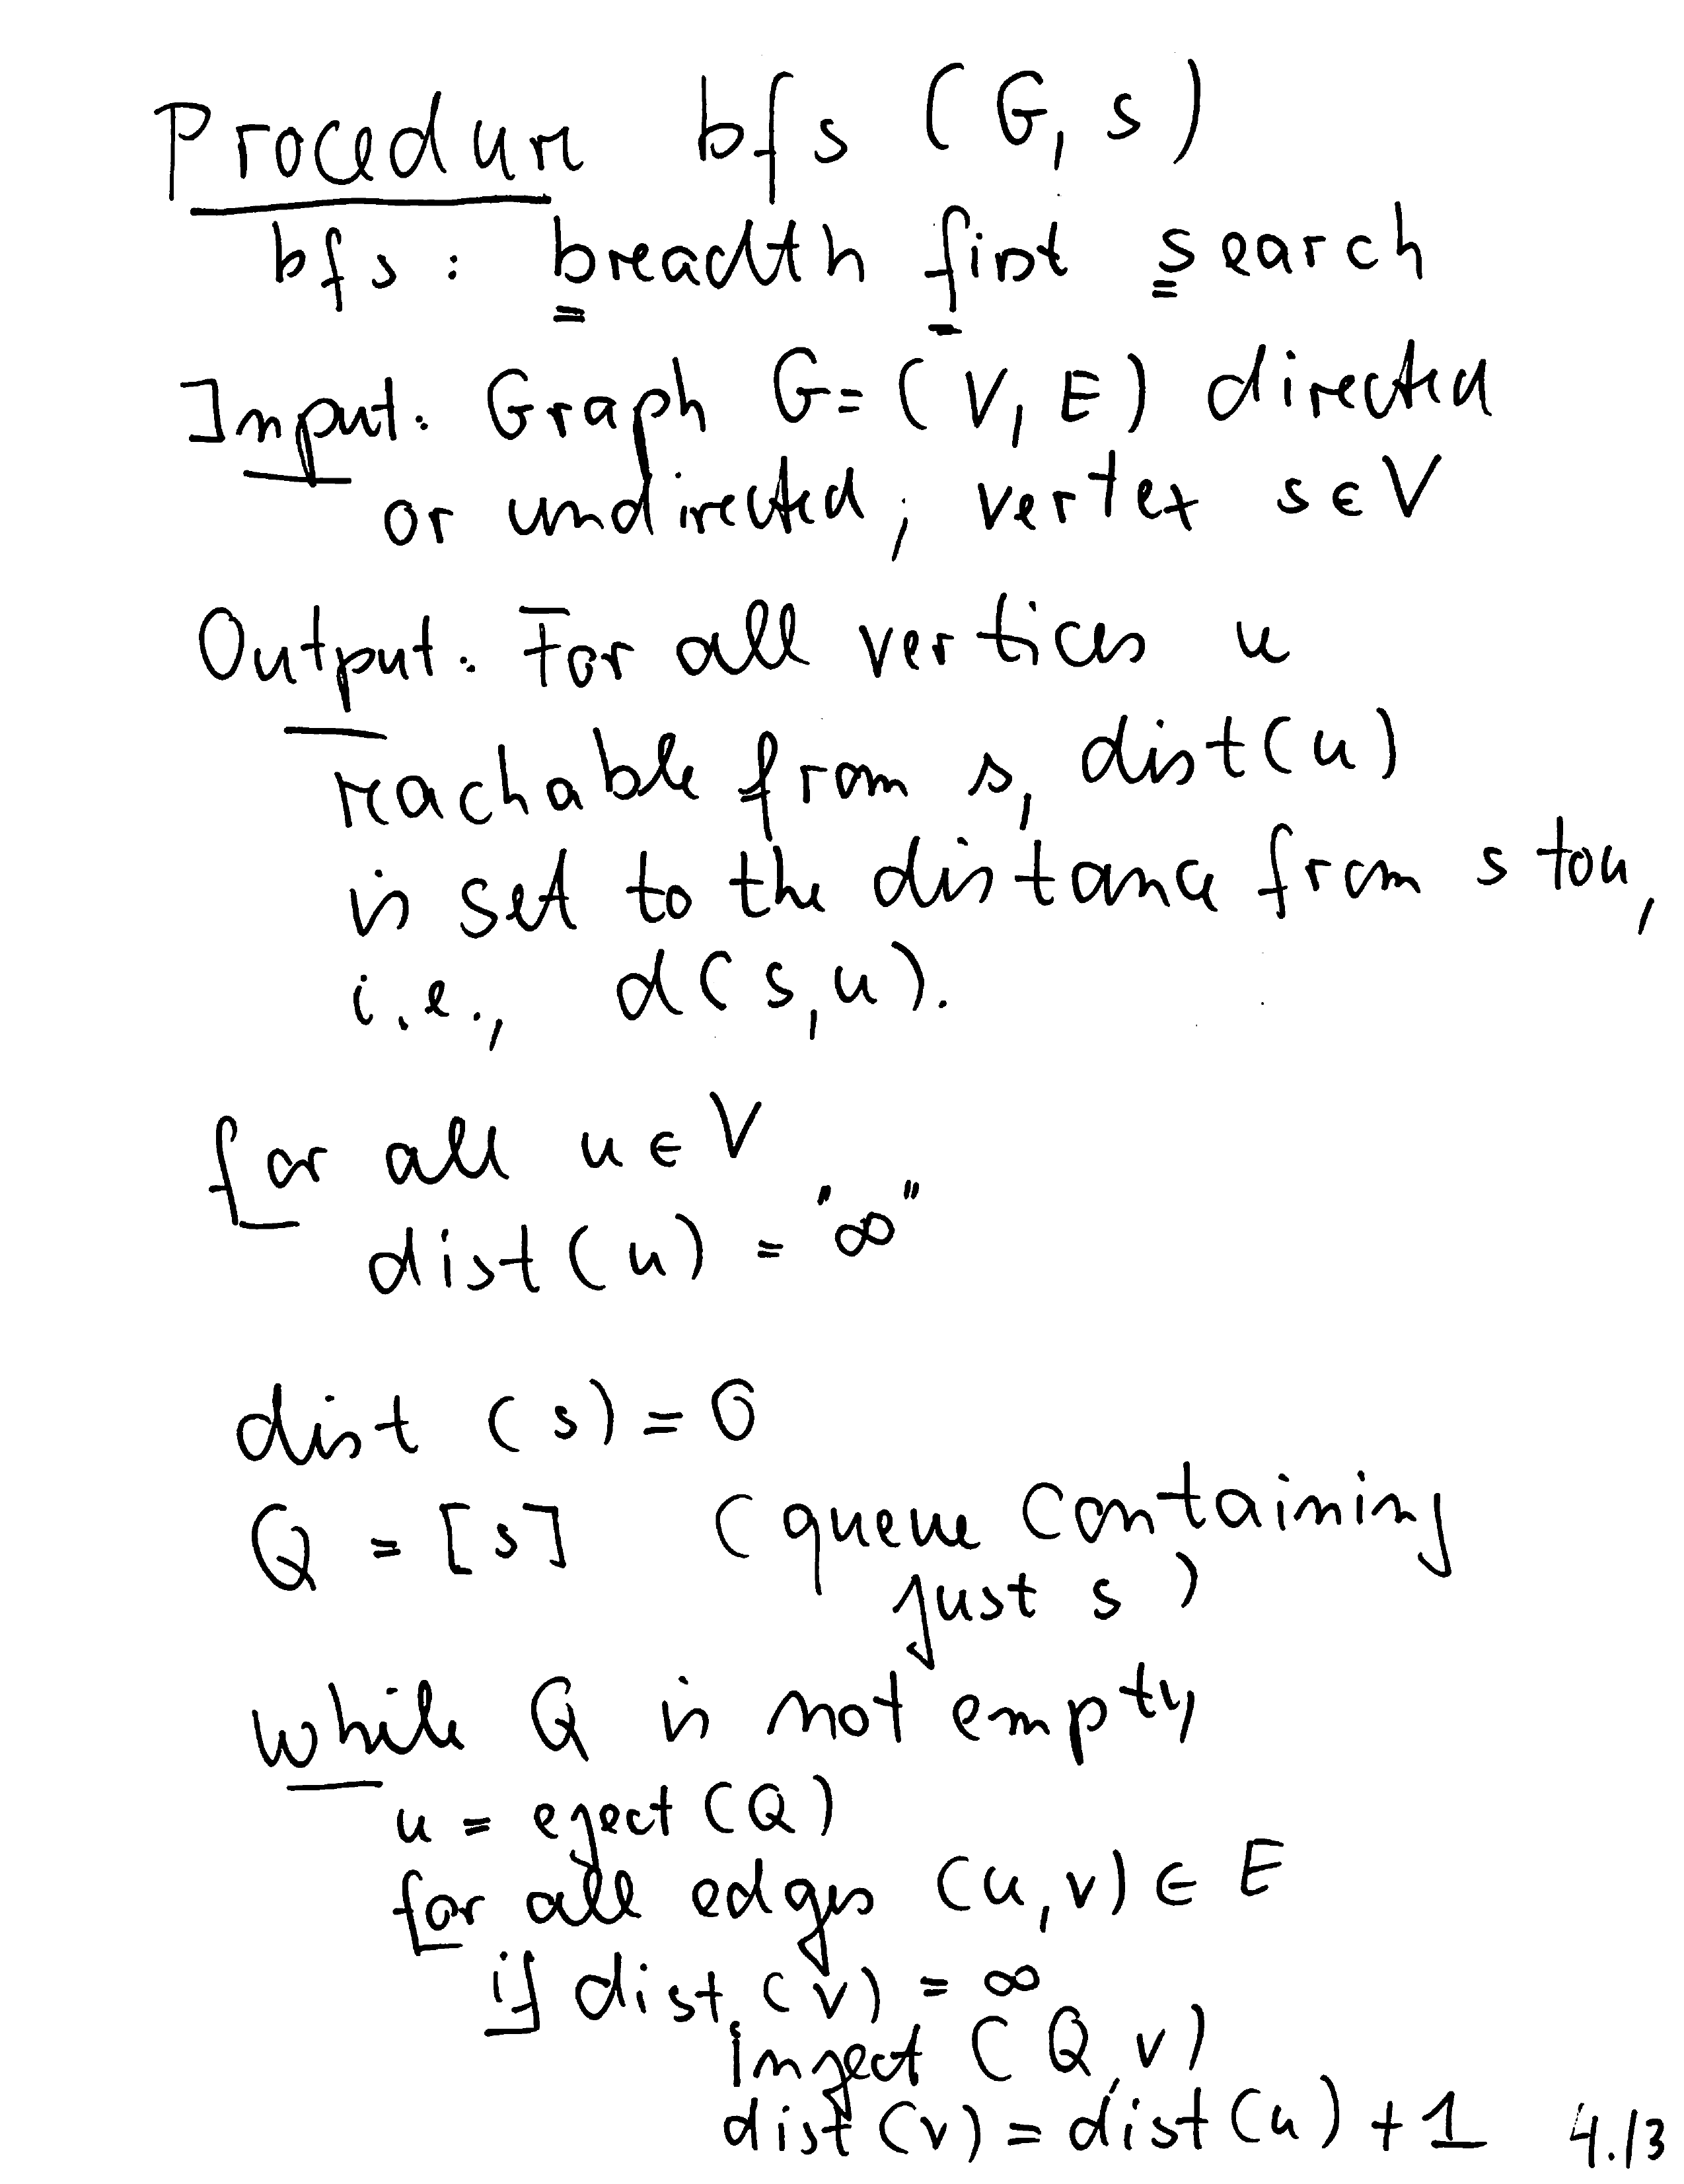 Procedure bfs (G, s)
bfs: breadth first search
Input: Graph G = (V, E) directed
or undirected; vertex s ∈ V
Output: For all vertices u
reachable from s, dist(u)
is set to the distance from s to u,
i.e., d(s,u).
for all u ∈ V
dist(u) = "∞"
dist (s) = 0
Q = [s] (queue containing
just s)
while Q is not empty
u = eject (Q)
for all edges (u,v) ∈ E
if dist (v) = ∞
inject (Q, v)
dist (v) = dist (u) + 1 4.13